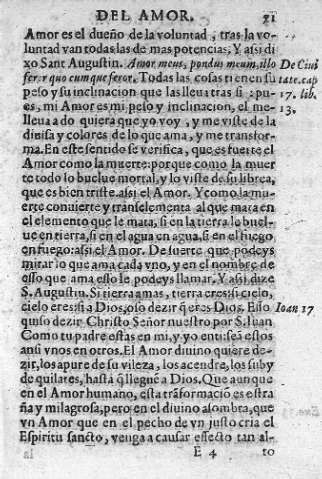 DEL AMOR. 51
Amor es el dueño de la voluntad, tras la vo-
luntad van todas las de mas potencias. Y assi di
xo Sant Augustin. Amor meus, pondus meum, illo De Ciui
feror quo cumque feror. Todas las cosas tienen su tate. cap
peso y su inclinacion que las lleua tras si: pu- 17. lib.
es, mi Amor es mi peso y inclinacion, el me- 13.
lleua a do quiera que yo voy, y me viste de la
diuisa y colores de lo que ama, y me transfor-
ma. En este sentido se verifica, que es fuerte el
Amor como la muerte: porque como la muer
te todo lo buelue mortal, y lo viste de su librea,
que es bien triste. assi el Amor. Y como la mu-
erte conuierte y transelementa al que mata en
el elemento que le mata, si en la tierra lo buel-
ue en tierra, si en el agua en agua, si en el fuego
en fuego: assi el Amor. De suerte que podeys
mirar lo que ama cada vno, y en el nombre de
esso que ama esso le podeys llamar. Y assi dize
S. Augustin. Si tierra amas, tierra eres: si cielo,
cielo eres: si a Dios, oso dezir q̃ eres Dios. Esso Ioan 17
quiso dezir Christo Señor nuestro por S. Iuan
Como tu padre estas en mi, y yo en ti: seã estos
ansi vnos en otros. El Amor diuino quiere de-
zir, los apure de su vileza, los acendre, los suby
de quilates, hasta q̃ llegué a Dios. Que aunque
en el Amor humano, esta trãsformaciõ es estra
ña y milagrosa, pero en el diuino asombra, que
vn Amor que en el pecho de vn justo cria el
Espiritu sancto, venga a causar effecto tan al-
E 4 to